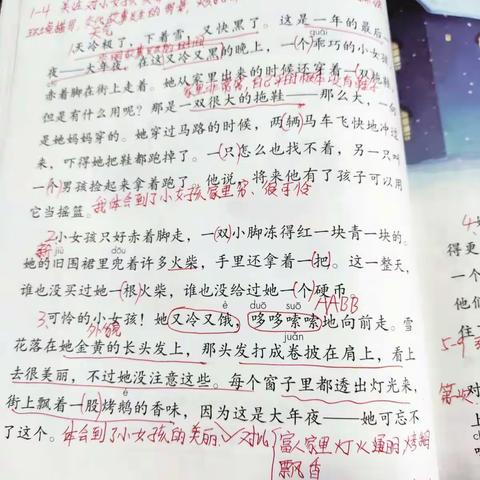 1-4
天冷极了，下着雪，又快黑了。这是一年的最后
夜——大年夜。在这又冷又黑的晚上，一个乖巧的小女孩
guāi
赤着脚在街上走着。她从家里出来的时候还穿着一双拖鞋
但是有什么用呢？那是一双很大的拖鞋——那么大，一
是她妈妈穿的。她穿过马路的时候，两辆马车飞快地冲过
来，吓得她把鞋都跑掉了。一只怎么也找不着，另一只叫
一个男孩捡起来拿着跑了。他说，将来他有了孩子可以用
它当摇篮。
我体会到了小女孩家里穷、很可怜
2小女孩只好赤着脚走，一双小脚冻得红一块青一块的。
jiù dōu
她的旧围裙里兜着许多火柴，手里还拿着一把。这一整天，
谁也没买过她一根火柴，谁也没给过她一个硬币。
AABB
è duō suō
3可怜的小女孩！她又冷又饿，哆哆嗦嗦地向前走。雪
外貌
juǎn
花落在她金黄的长头发上，那头发打成卷披在肩上，看上
去很美丽，不过她没注意这些。每个窗子里都透出灯光来，
é
街上飘着一股烤鹅的香味，因为这是大年夜——她可忘不
了这个。
体会到了小女孩的美丽
对比
富人家里灯火通明 烤鹅
飘香
5-9